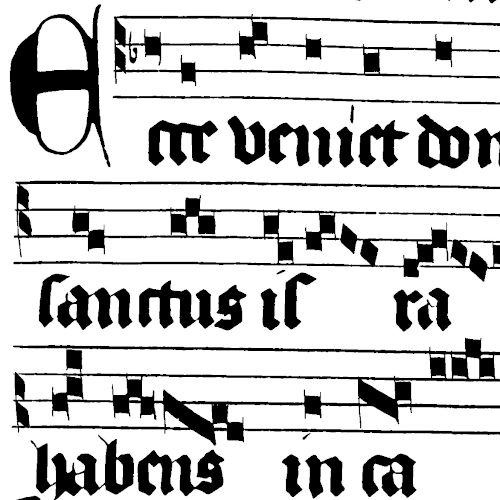 Ecce veniet don
sanctus is ra
habens in ea